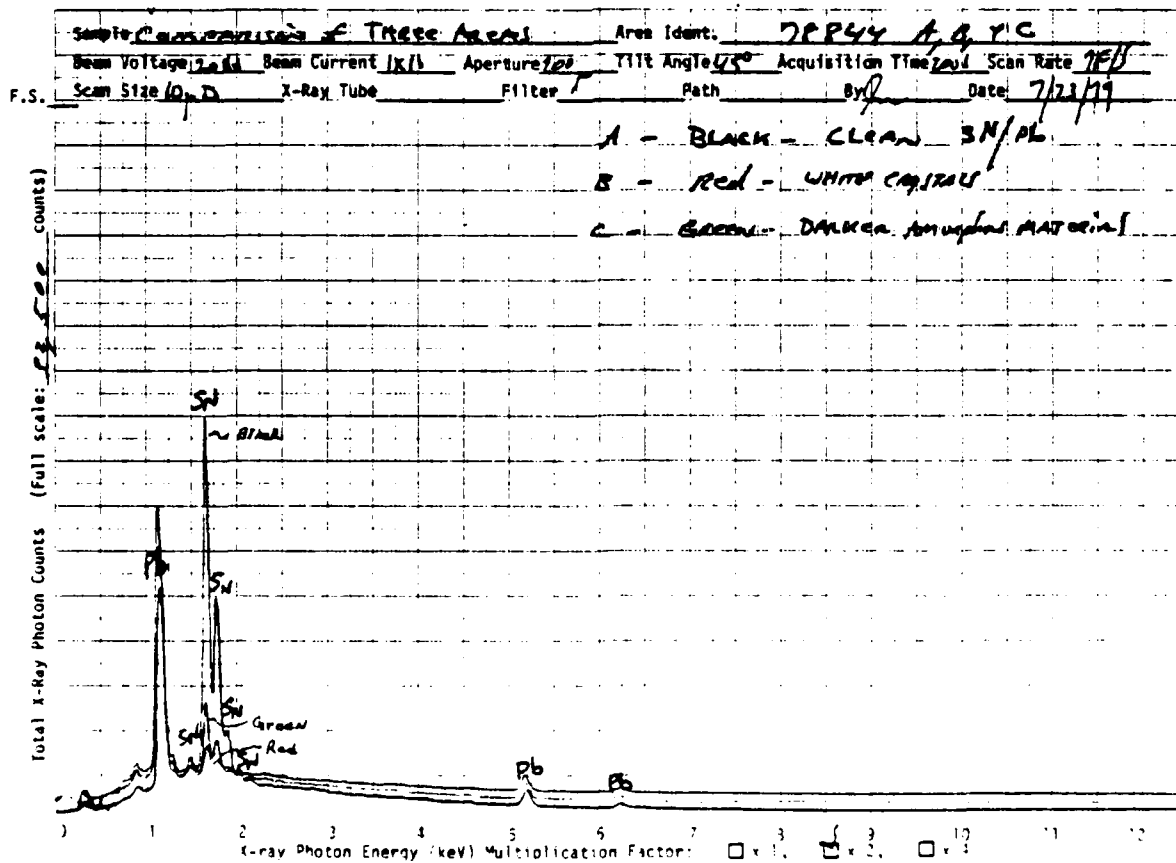 Sample Comparison of Three Areas Area Ident. 78844 A, B, & C
Beam Voltage Beam Current Aperture 200 Tilt Angle 45° Acquisition Time Scan Rate
F.S. Scan Size X-Ray Tube Filter Path By Date 7/23/79
A - BLACK - CLEAN SN/Pb
B - Red - WHITE CRYSTALS
C - GREEN - DARKER Amorphous MATERIAL
Total X-Ray Photon Counts (Full scale: counts)
SN
Black
Pb
SN
SN
Green
SN
Red
SN
Pb
Pb
0 1 2 3 4 5 6 7 8 9 10 11 12
X-ray Photon Energy (keV) Multiplication Factor: x 1, x 2, x 4